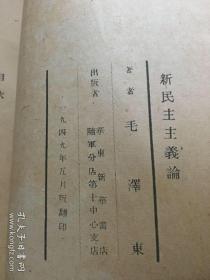 新民主主義論
著者 毛澤東
出版者 華東新華書店
隨軍分店第十中心支店
一九四九年五月皖翻印
目次